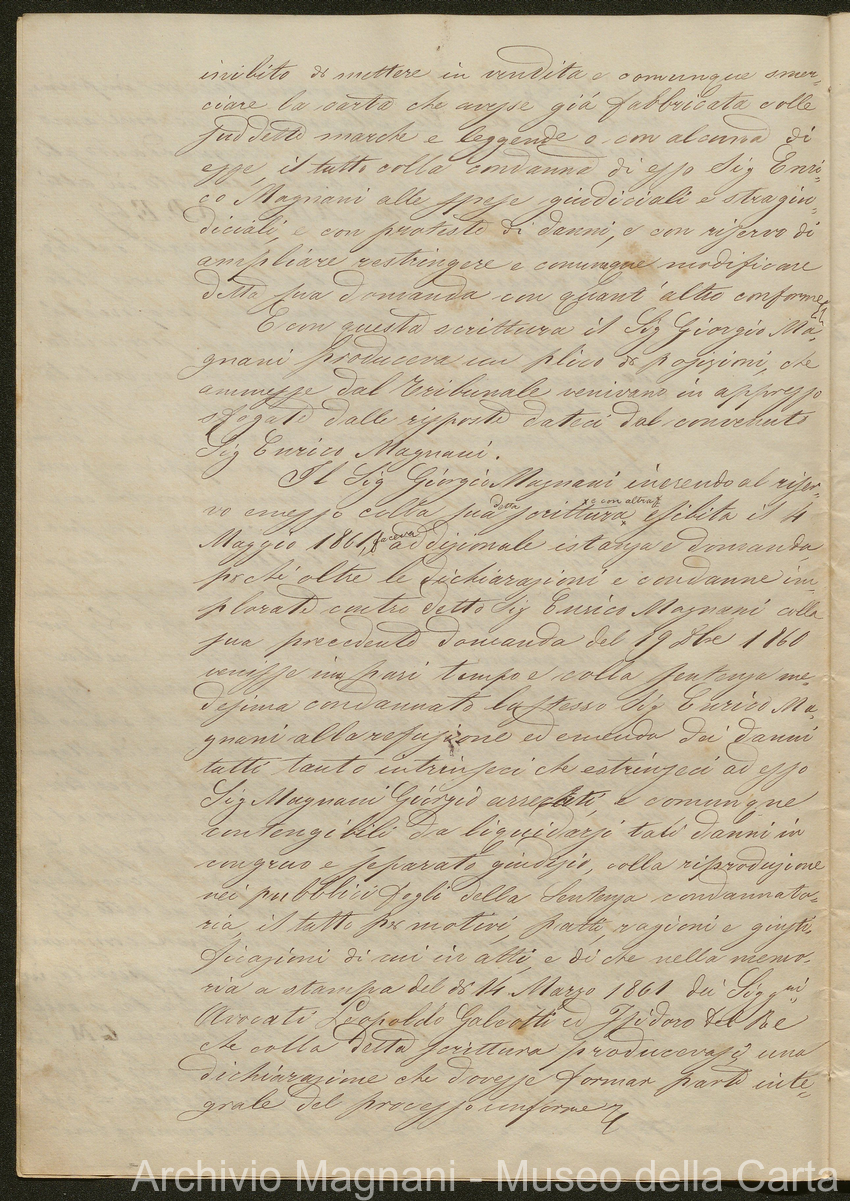 inibito di mettere in vendita e comunque smer-
ciare la carta che avesse già fabbricata colle
suddette marche e leggende o con alcuna di
esse, il tutto colla condanna di esso Sig Enri-
co Magnani alle spese giudiciali e stragiu-
diciali, e con proteste di danni, e con riservo di
ampliare restringere e comunque modificare
detta sua domanda con quant'altro conforme
E con questa scrittura il Sig Giorgio Ma-
gnani produceva un plico di posizioni, che
ammesse dal Tribunale venivano in appresso
sfogate dalle risposte dateci dal convenuto
Sig Enrico Magnani.
Il Sig Giorgio Magnani inerendo al riser-
vo emesso colla sua detta scrittura e con altra esibita il 4
Maggio 1861, faceva addizionale istanza e domanda
perché oltre le dichiarazioni e condanne im-
plorate contro detto Sig Enrico Magnani colla
sua precedente domanda del 19 Xbre 1860
venisse in pari tempo e colla sentenza me-
desima condannato lo stesso Sig Enrico Ma-
gnani alla refusione ed emenda dei danni
tutti tanto intrinseci che estrinseci ad esso
Sig Magnani Giorgio arrecati, e comunque
contengibili da liquidarsi tali danni in
congruo e separato giudizio, colla riproduzione
nei pubblici fogli della Sentenza condannato-
ria, il tutto per motivi, fatti, ragioni e giusti-
ficazioni di cui in atti, e di che nella memo-
ria a stampa del dì 14 Marzo 1861 dei Sigg.ri
Avvocati Leopoldo Galeotti ed Isidoro del Re
che colla detta scrittura producevasi una
dichiarazione che dovesse formar parte inte-
grale del processo conforme
Archivio Magnani - Museo della Carta